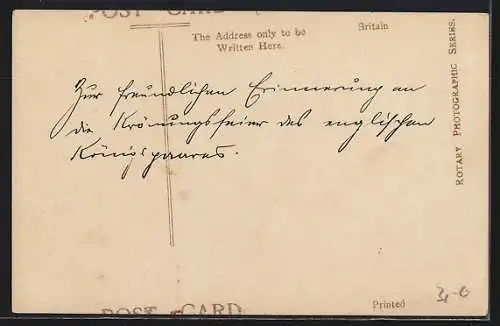 POST CARD
The Address only to be
Written Here.
Britain
ROTARY PHOTOGRAPHIC SERIES.
Zur freundlichen Erinnerung an
die Krönungsfeier des englischen
Königspaares.
POST CARD
Printed